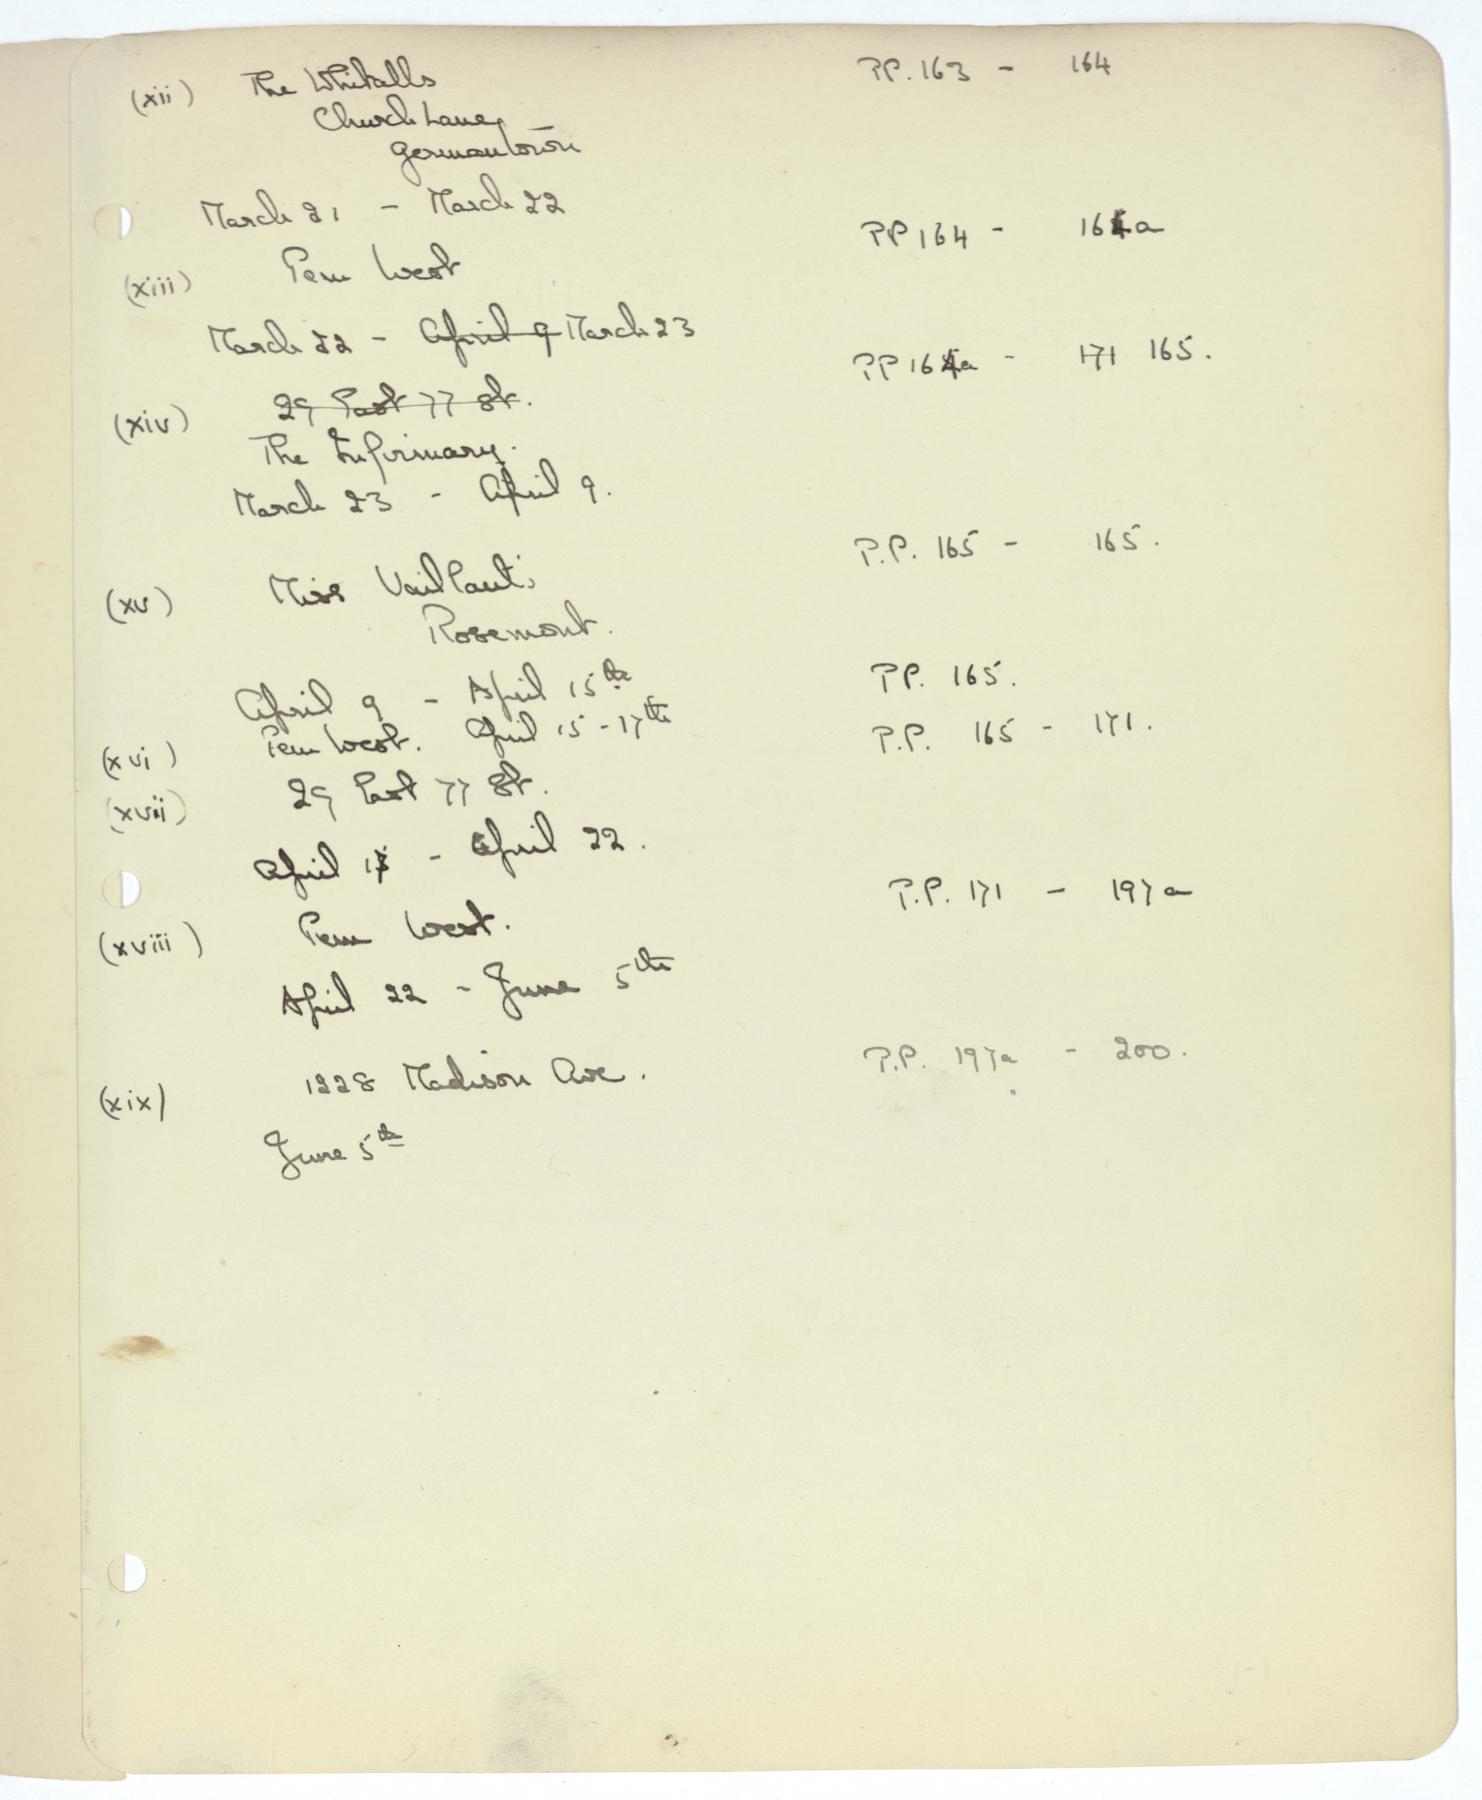 (xii) The Whitalls PP. 163 - 164
Church Lane,
Germantown
March 21 - March 22
(xiii) Pem West PP 164 - 164a
March 22 - April 9 March 23
(xiv) 29 East 77 St. PP 164a - 171 165.
The Infirmary.
March 23 - April 9.
(xv) Miss Vaillant's P.P. 165 - 165.
Rosemont.
April 9 - April 15th
(xvi) Pem West. April 15 - 17th PP. 165.
(xvii) 29 East 77 St. P.P. 165 - 171.
April 17 - April 22.
(xviii) Pem West. P.P. 171 - 197a
April 22 - June 5th
(xix) 1228 Madison Ave. P.P. 197a - 200.
June 5th